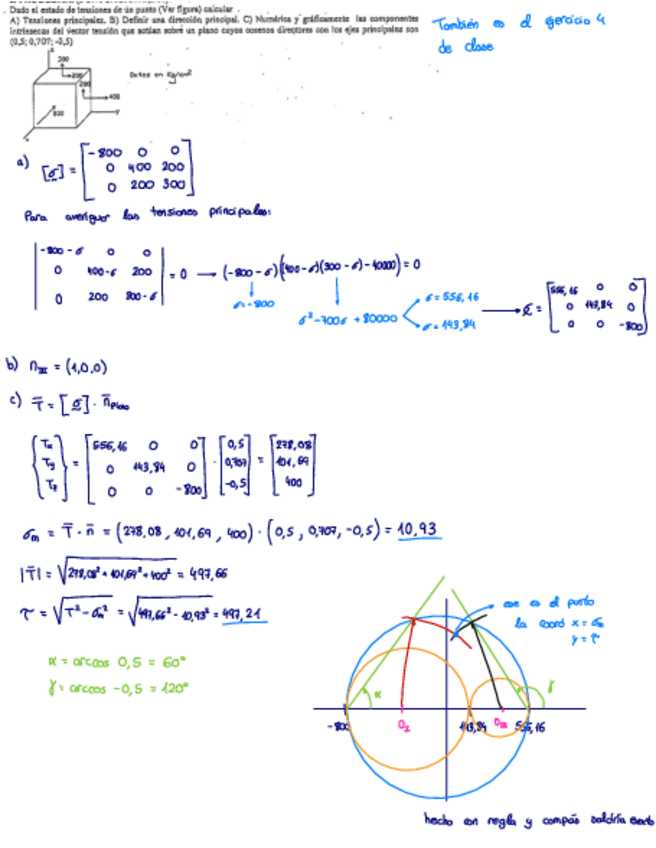 . Dado el estado de tensiones de un punto (Ver figura) calcular .
A) Tensiones principales. B) Definir una dirección principal. C) Numérica y gráficamente las componentes
intrínsecas del vector tensión que actúan sobre un plano cuyos cosenos directores con los ejes principales son
(0,5; 0,707; -0,5)
También es el ejercicio 4
de clase
z
300
200
200
400
800
Y
x
Datos en Kg/cm²
a) [σ] = [-800 0 0
0 400 200
0 200 300]
Para averiguar las tensiones principales:
|-800-σ 0 0
0 400-σ 200
0 200 300-σ| = 0 → (-800-σ)((400-σ)(300-σ)-40000) = 0
σ=-800
σ²-700σ+80000
σ=556,16
σ=143,84
→ σ = [556,16 0 0
0 143,84 0
0 0 -800]
b) n_III = (1,0,0)
c) T̄ = [σ] · n̄ Plano
{Tx
Ty
Tz} = [556,16 0 0
0 143,84 0
0 0 -800] · [0,5
0,707
-0,5] = [278,08
101,69
400]
σm = T̄ · n̄ = (278,08 , 101,69 , 400) · (0,5 , 0,707, -0,5) = 10,93
|T̄| = √278,08² + 101,69² + 400² = 497,66
τ = √T² - σm² = √497,66² - 10,93² = 497,21
α = arccos 0,5 = 60°
γ = arccos -0,5 = 120°
ese es el punto
la coord x = σm
y = τ
α
γ
-800
O_I
143,84
O_III
556,16
hecho con regla y compás saldría exacto